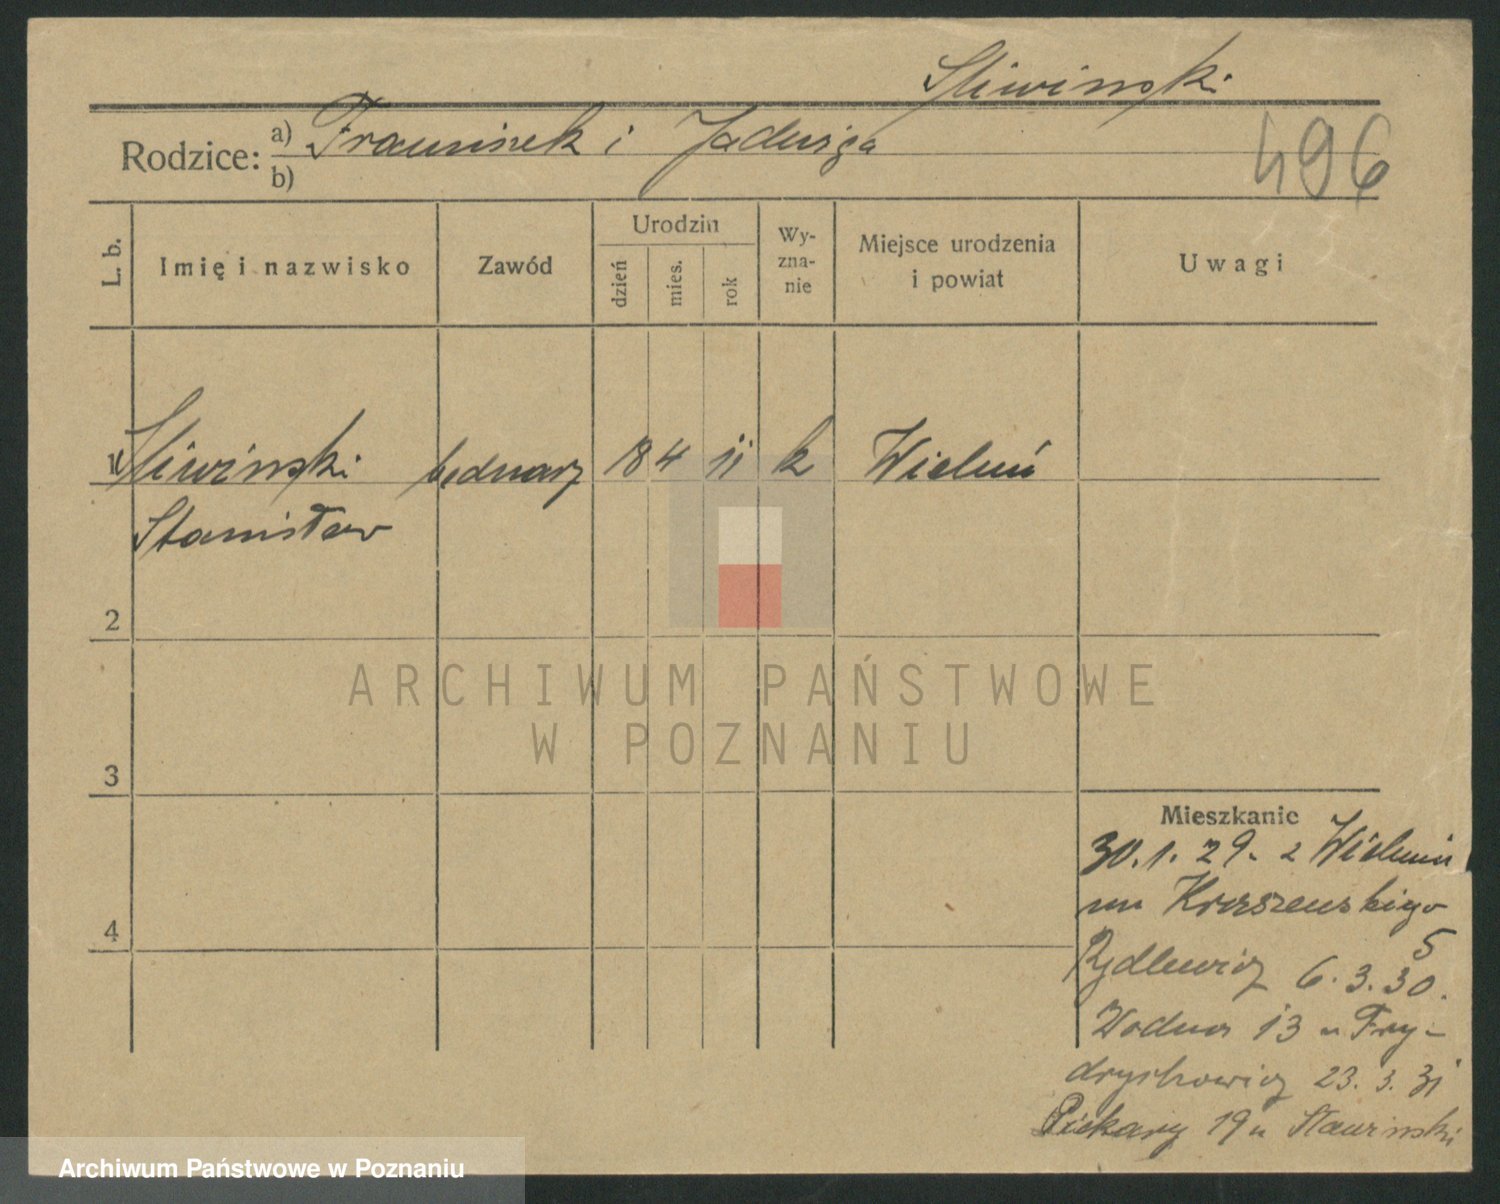 Sliwinski
Rodzice: a) Franciszek i Jadwiga
b)
496
L. b.
Imię i nazwisko
Zawód
Urodzin
dzień
mies.
rok
Wy-
zna-
nie
Miejsce urodzenia
i powiat
Uwagi
1 Sliwinski bednarz 18 4 11 k Wieluń
Stanisław
2
ARCHIWUM PAŃSTWOWE
W POZNANIU
3
Mieszkanie
30.1.29. z Wielunia
Kraszewskiego
5
Rydlewicz 6.3.30.
Wodna 13 u Fry-
drychowicz 23.3.31
4
Piekary 19 u Stawinski
Archiwum Państwowe w Poznaniu